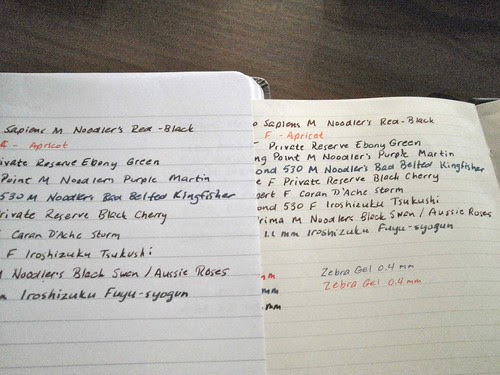 Sapiens M Noodler's Red-Black
F - Apricot
Private Reserve Ebony Green
Point M Noodlers Purple Martin
530 M Noodler's Bad Belted Kingfisher
Private Reserve Black Cherry
F Caran D'Ache Storm
F Iroshizuku Tsukushi
M Noodler's Black Swan / Aussie Roses
Iroshizuku Fuyu-syogun
o Sapiens M Noodler's Red-Black
F - Apricot
- Private Reserve Ebony Green
ng Point M Noodler's Purple Martin
ond 530 M Noodler's Bad Belted Kingfisher
e F Private Reserve Black Cherry
F Caran D'Ache Storm
ond 530 F Iroshizuku Tsukushi
Prima M Noodlers Black Swan / Aussie Roses
1.1 mm Iroshizuku Fuyu-syogun
Zebra Gel 0.4 mm
mm Zebra Gel 0.4 mm
mm
mm